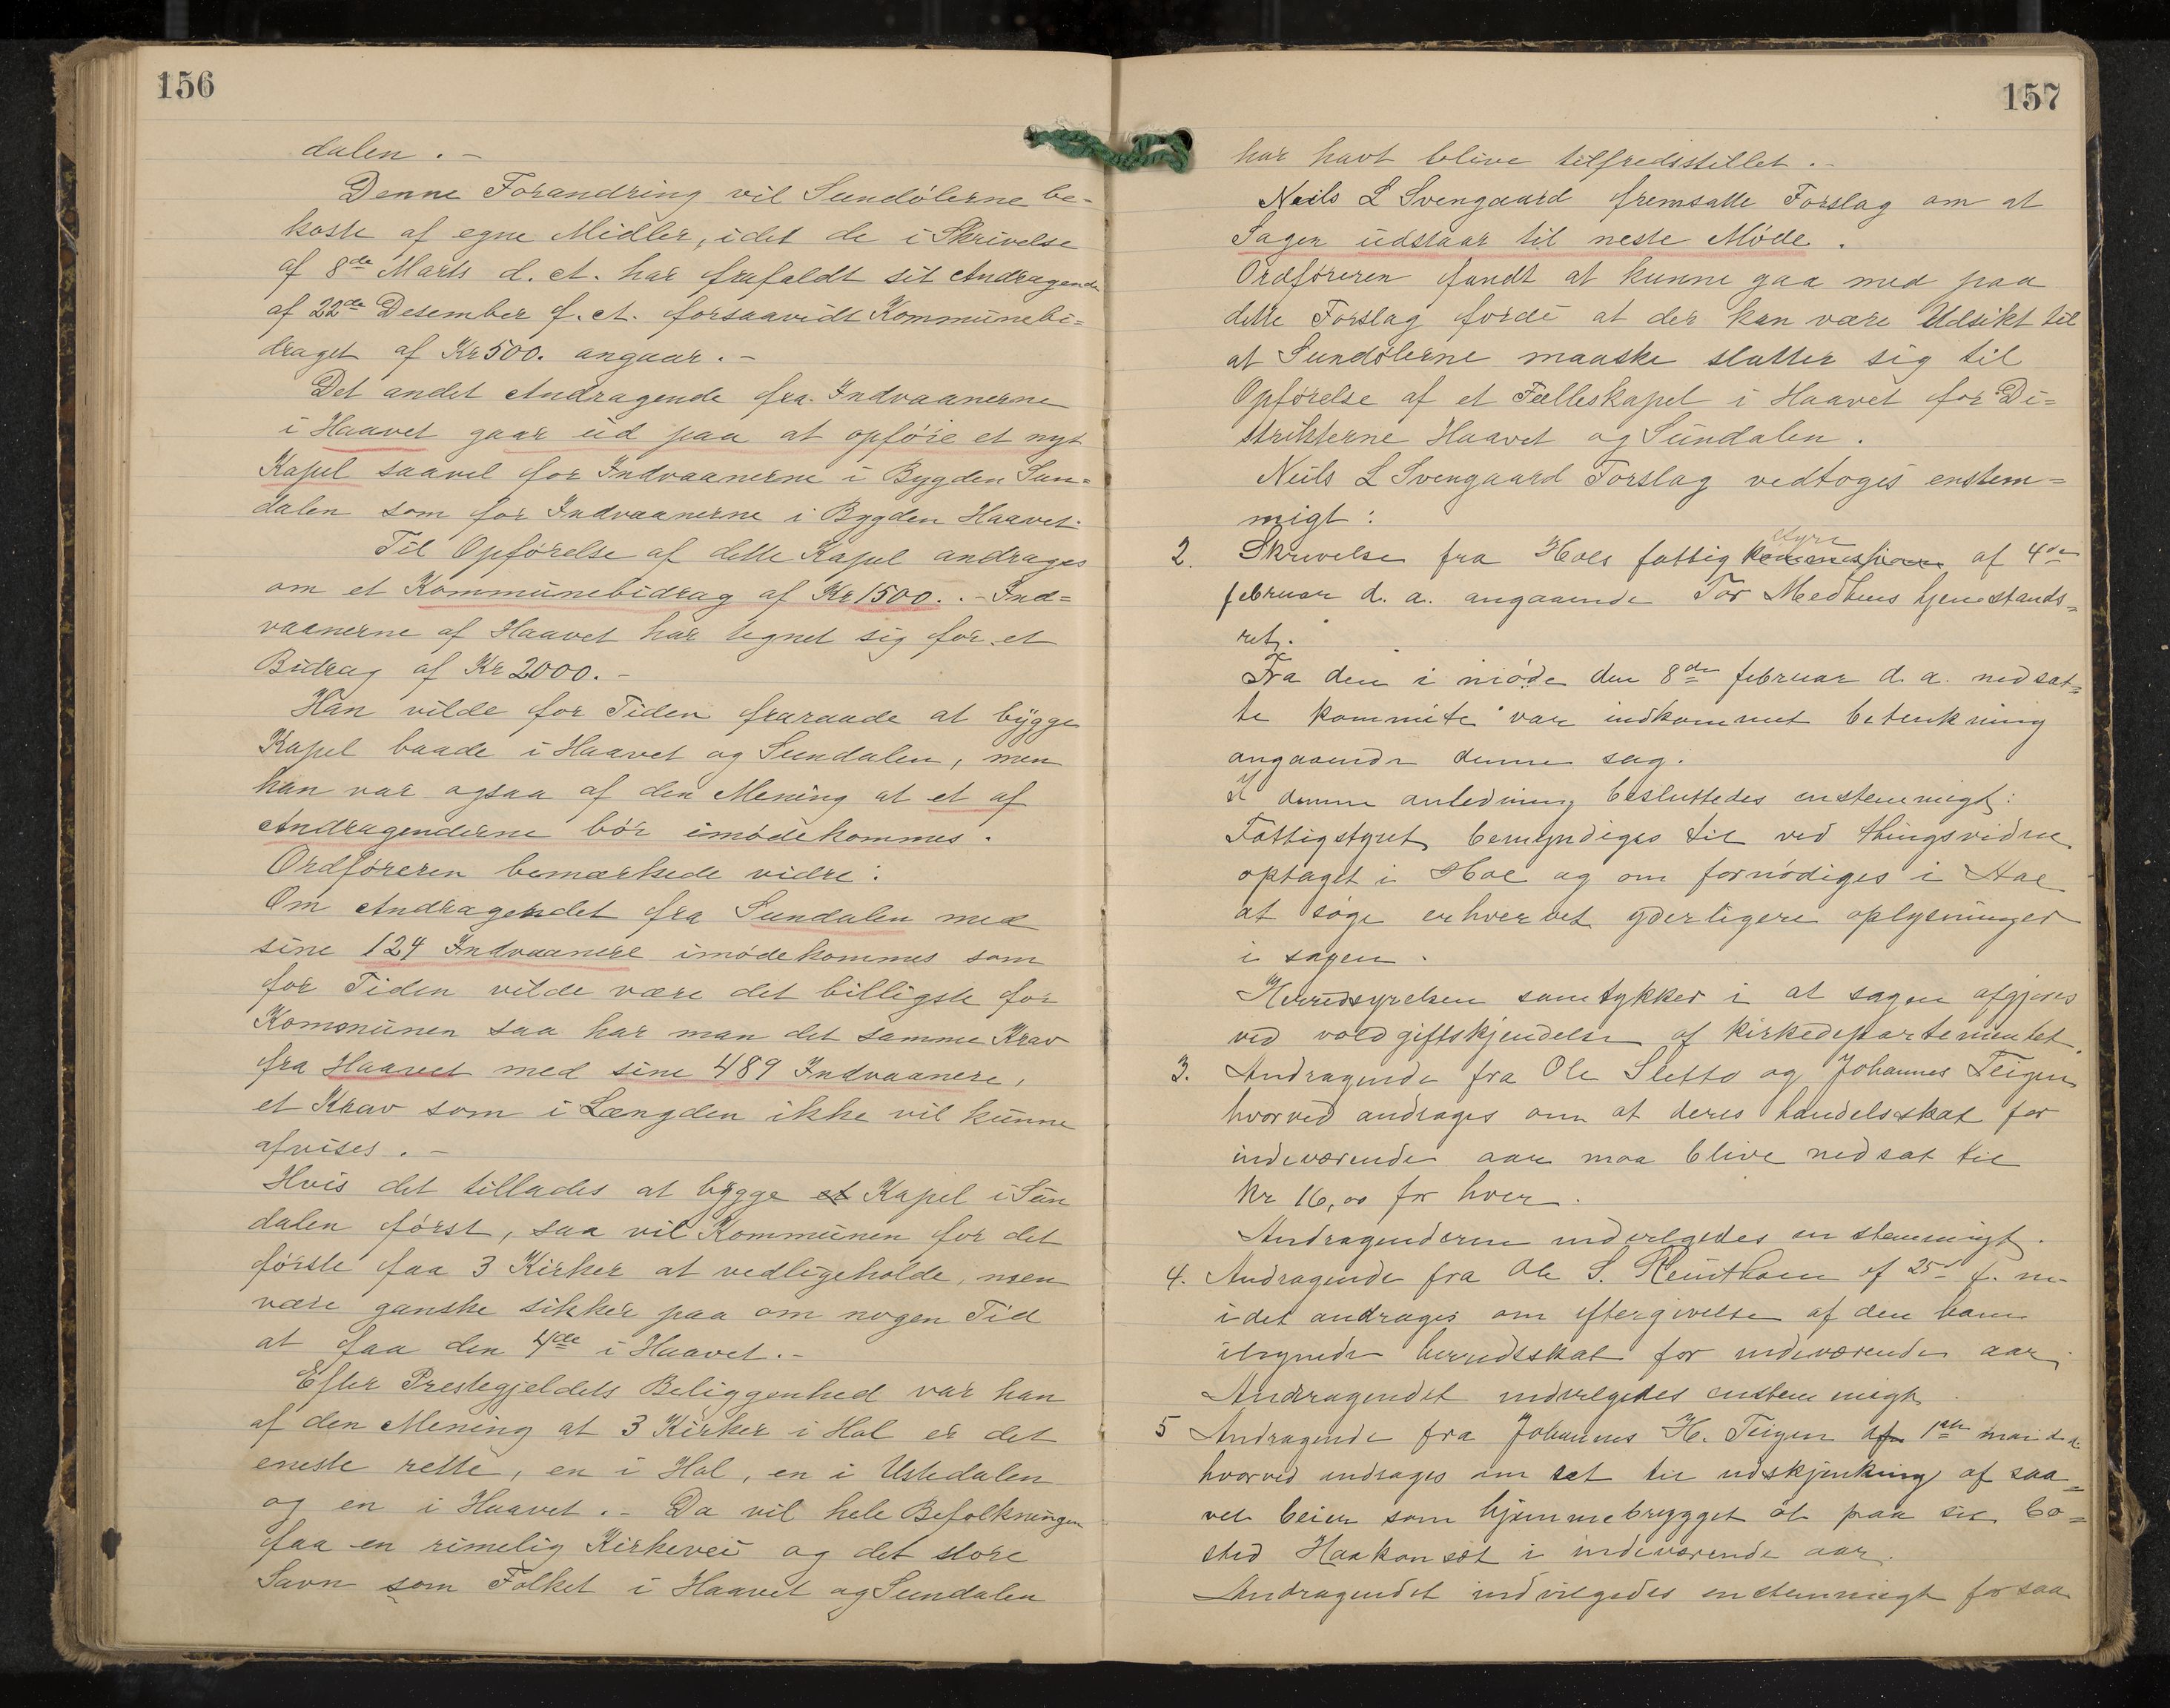 156
dalen . –
Denne Forandring vil Sundölerne be-
koste af egne Midler, idet de i Skrivelse
af 8de Marts d. A. har frafaldt sit Andragende
af 22de Desember f. A. forsaavidt Kommunebi=
draget af Kr 500. angaar. –
Det andet Andragende fra Indvaanerne
i Haavet gaar ud paa at opföre et nyt
Kapel saavel for Indvaanerne i Bygden Sun=
dalen som for Indvaanerne i Bygden Haavet.
Til Opförelse af dette Kapel andrages
om et Kommunebidrag af Kr 1500. . – Ind=
vaanerne af Haavet har tegnet sig for et
Bidrag af Kr 2000. –
Han vilde for Tiden fraraade at bygge
Kapel baade i Haavet og Sundalen, men
han var ogsaa af den Mening at et af
Andragenderne bör imödekommes.
Ordföreren bemærkede vidre:
Om Andragendet fra Sundalen med
sine 124 Indvaanere imödekommes som
for Tiden vilde være det billigste for
Kommunen saa har man det samme Krav
fra Haavet med sine 489 Indvaanere,
et Krav som i Længden ikke vil kunne
afvises . –
Hvis det tillades at bygge et Kapel i Sun
dalen först, saa vil Kommunen for det
förste faa 3 Kirker at vedligeholde, men
være ganske sikker paa om nogen Tid
at faa den 4de i Haavet. –
Efter Prestegjeldets Beliggenhed var han
af den Mening at 3 Kirker i Hol er det
eneste rette, en i Hol, en i Ustedalen
og en i Haavet. – Da vil hele Befolkningen
faa en rimelig Kirkevei og det store
Savn som Folket i Haavet og Sundalen
157
har havt blive tilfredsstillet . –
Neils L Svengaard fremsatte Forslag om at
Sagen udstaar til neste Möde .
Ordföreren fandt at kunne gaa med paa
dette Forslag fordi at der kan være Udsikt til
at Sundölerne maaske slutter sig til
Opförelse af et Fælleskapel i Haavet for Di=
strikterne Haavet og Sundalen .
Neils L Svengaard Forslag vedtoges enstem=
migt :
styre
2. Skrivelse fra Hols fattig kommission af 4de
februar d. a. angaaende Tor Medhus hjemstands=
ret.
Fra den i möde den 8de februar d. a. nedsat=
te kommite var indkommet betenkning
angaaende denne sag.
I denne anledning besluttedes enstemmigt:
Fattigstyret bemyndiges til ved thingsvidne
optaget i Hol og om fornödiges i Aal
at söge erhvervet yderligere oplysninger
i sagen .
Herredsyrelsen samtykker i at sagen afgjöres
ved voldgiftskjendelse af kirkedepartementet.
3. Andragende fra Ole Sletto og Johannes Teigen
hvorved andrages om at deres handelsskat for
indeværende aar maa blive nedsat til
Kr 16,00 for hver .
Andragenderne indvilgedes enstemmigt .
4. Andragende fra Ole S. af 25de f. m.
i det andrages om eftergivelse af den ham
ilignede herredsskat for indeværende aar.
Andragendet indvilgedes enstemmigt .
5 Andragende fra Johannes H. Teigen af 1ste mai d. a.
hvorved andrages om ret til udskjenkning af saa=
vel beier som hjemmebrygget öl paa sit bo=
sted Haakonset i indeværende aar.
Andragendet indvilgedes enstemmigt for saa